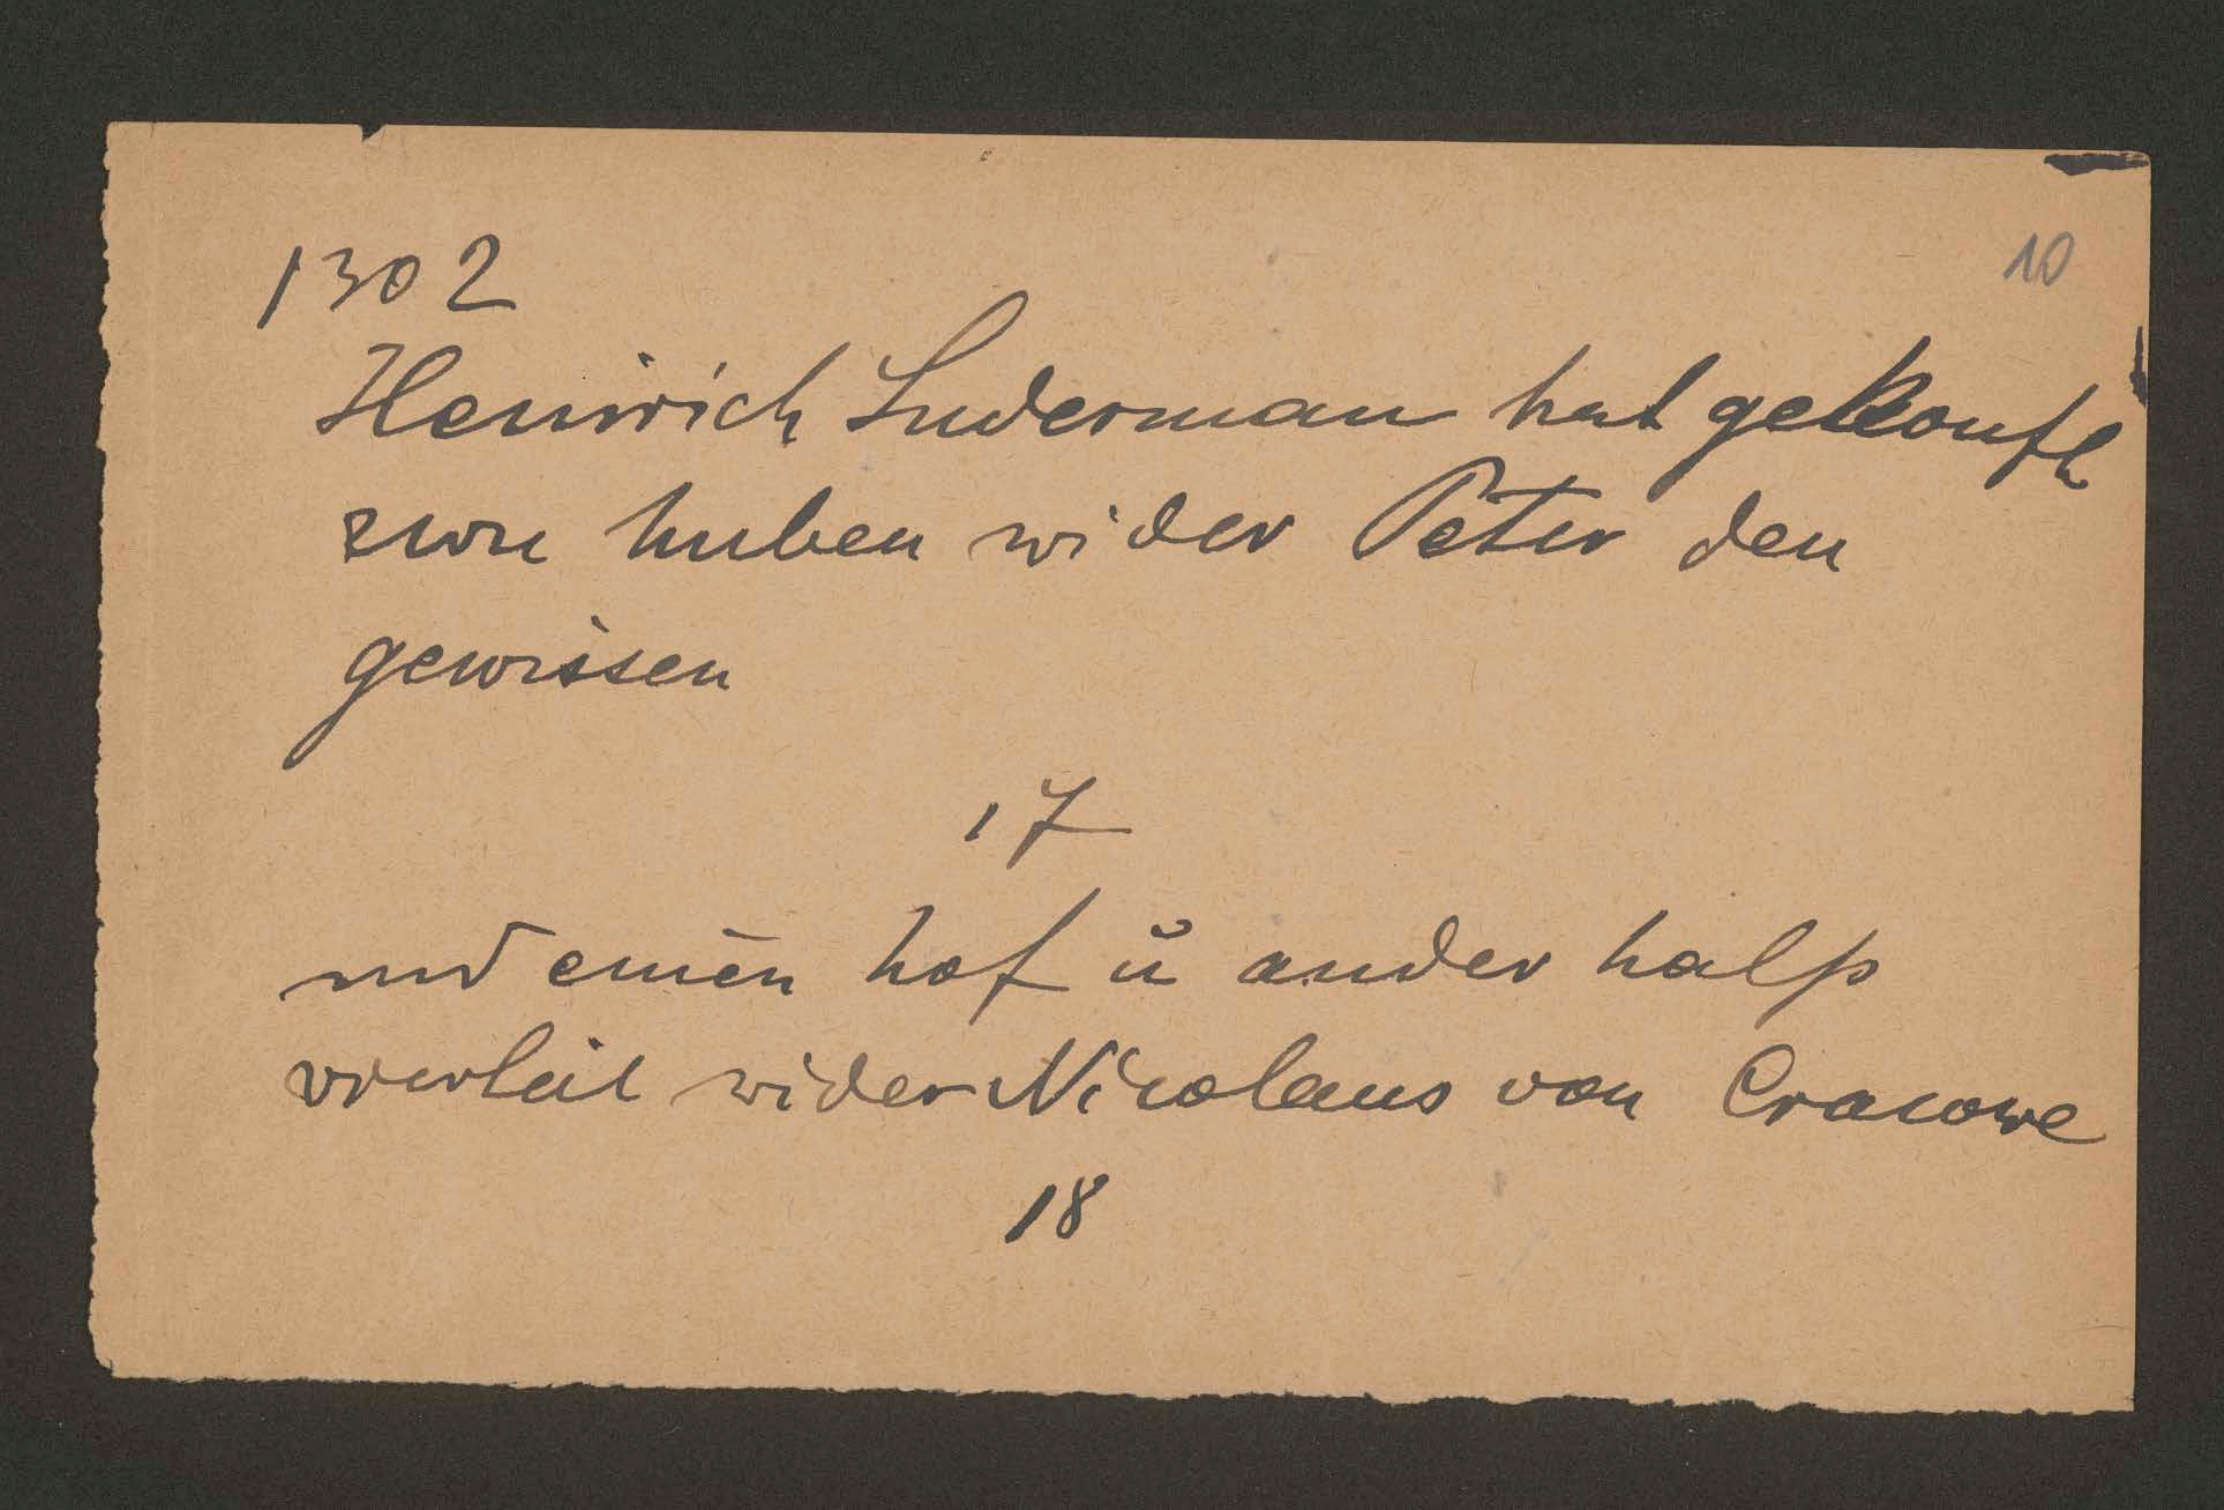 1302
10
Heinrich Luderman hat gekouft
zwu huben wider Peter den
gewissen
17
und einen hof ů ander halp
vierteil wider Nicolaus von Cracowe
18